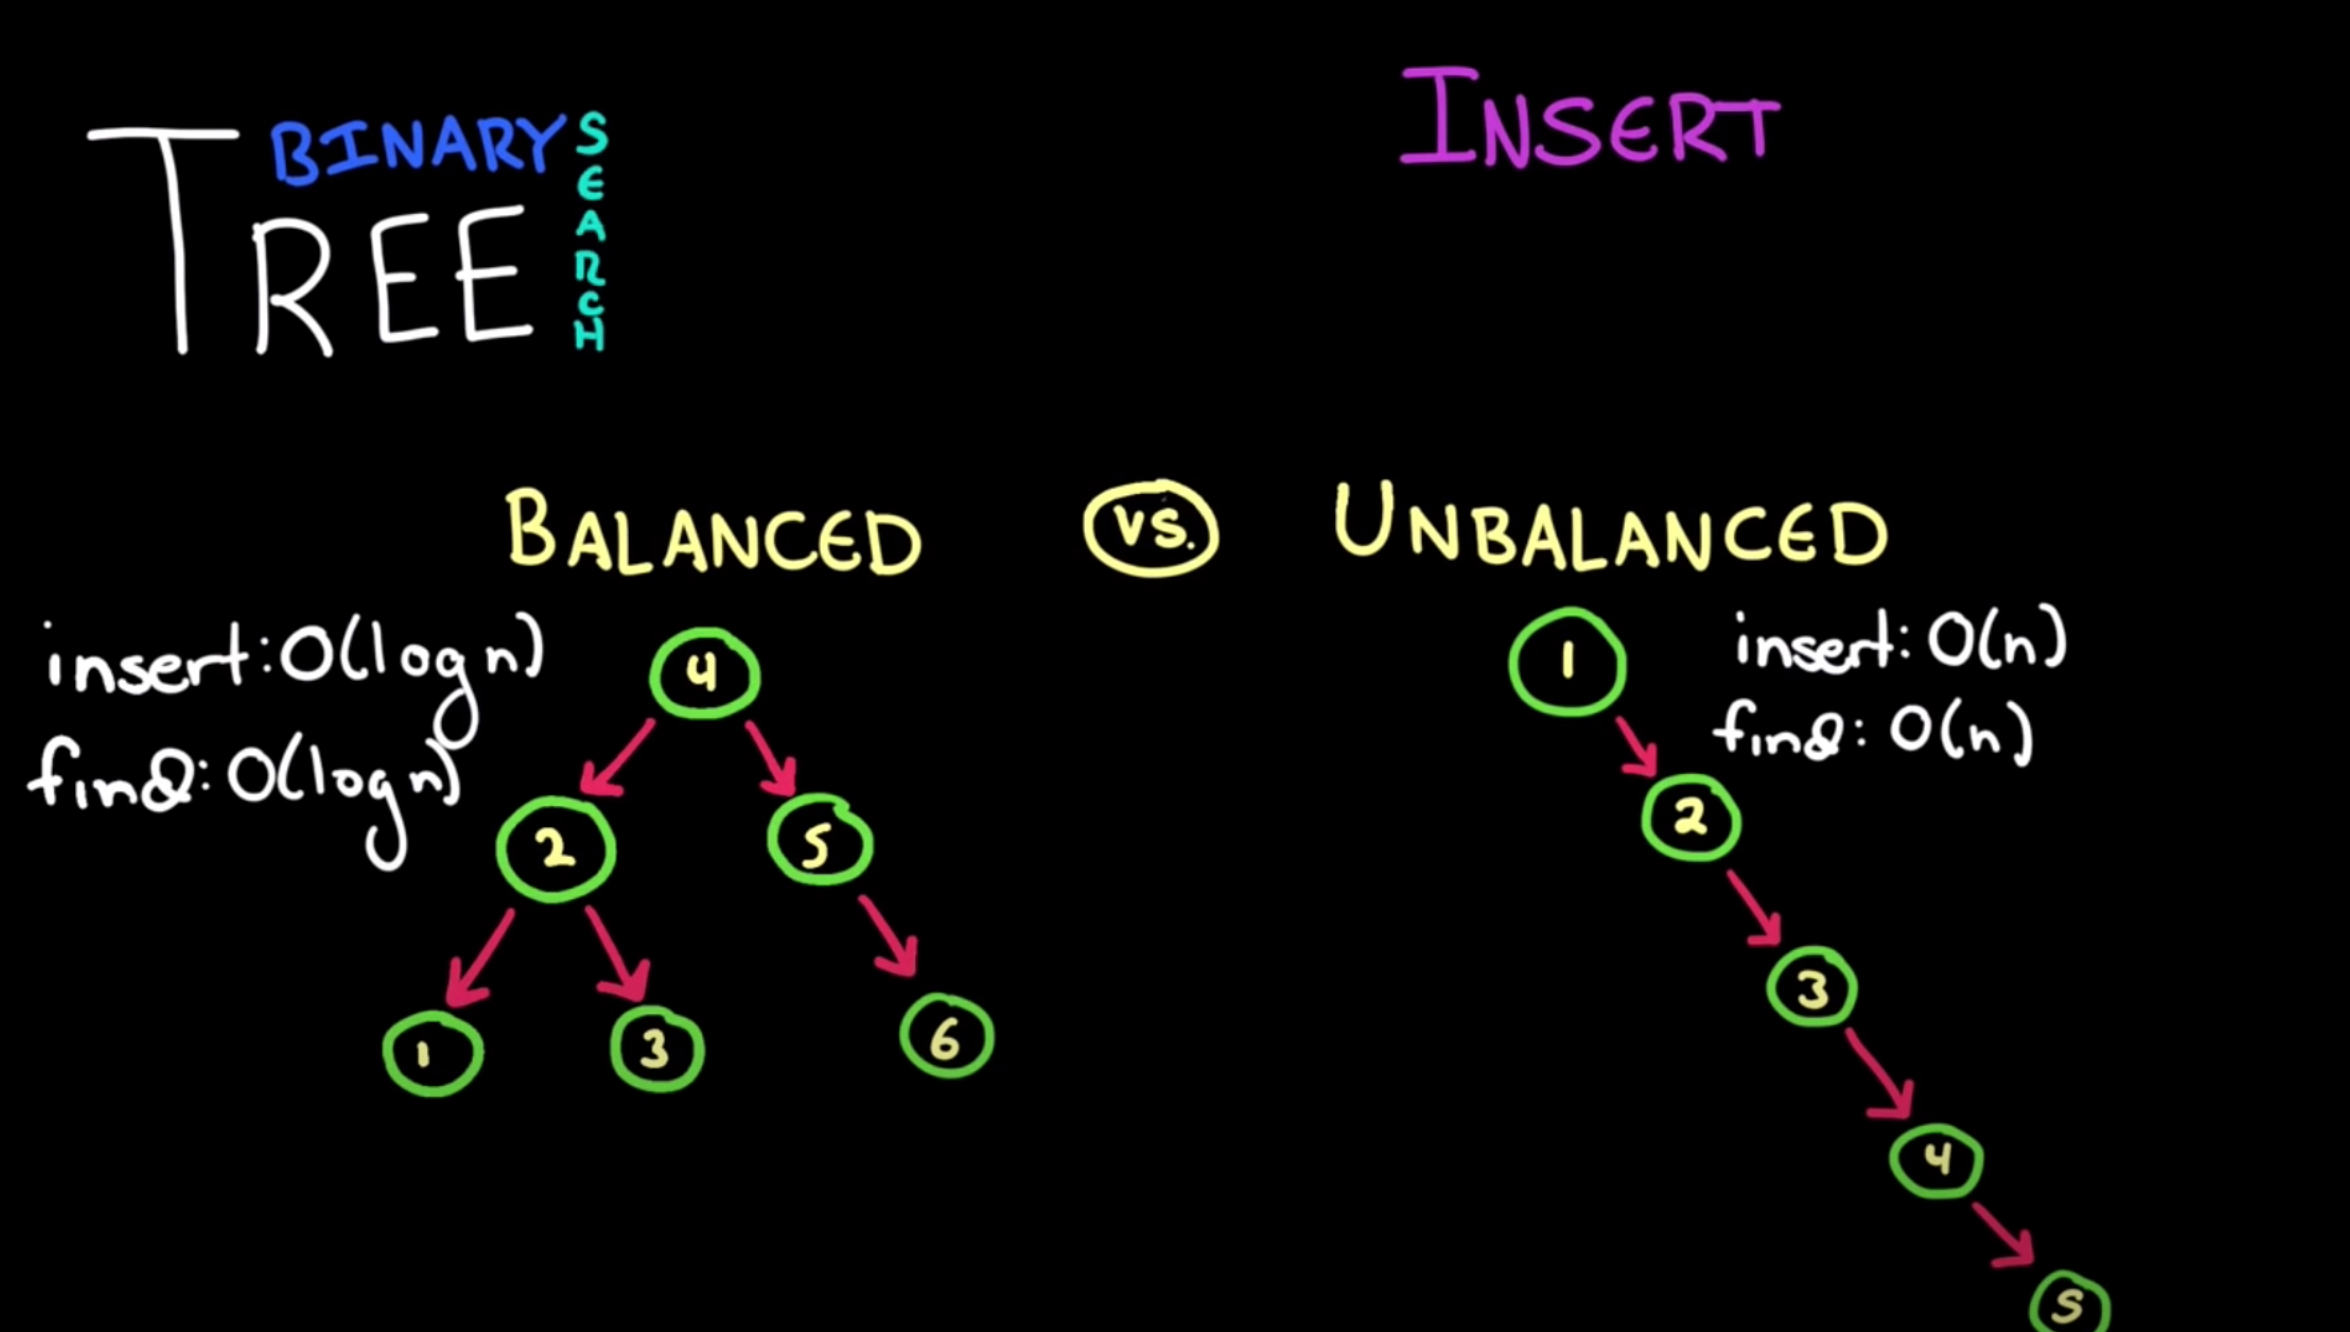 BINARY
SEARCH
TREE
INSERT
BALANCED
vs.
UNBALANCED
insert: O(log n)
find: O(log n)
4
2
5
1
3
6
insert: O(n)
find: O(n)
1
2
3
4
5